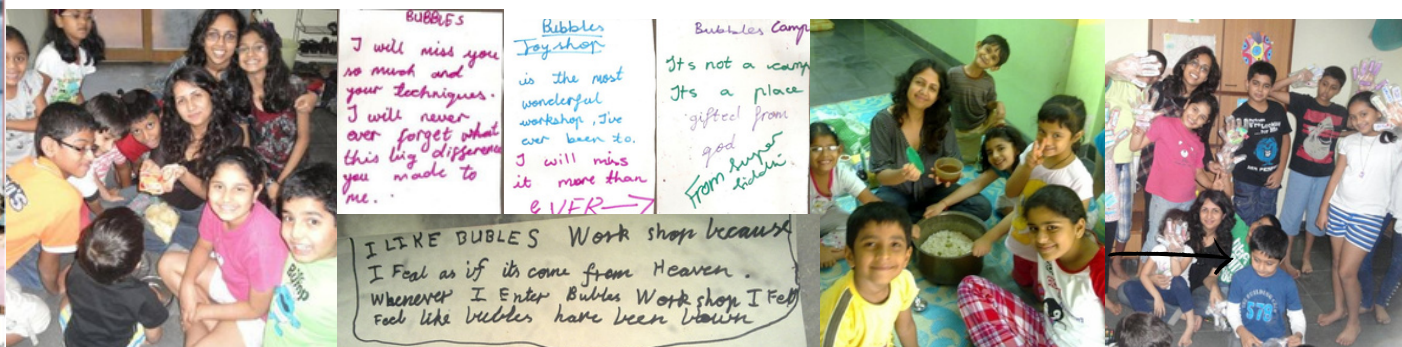 BUBBLES
I will miss you
so much and
your techniques.
I will never
ever forget what
this big difference
you made to
me.
Bubbles
Joyshop
is the most
wonderful
workshop, I've
ever been to.
I will miss
it more than
EVER
Bubbles Camp
Its not a camp
Its a place
gifted from
god
From super
Siddhi
I LIKE BUBLES Work shop because
I Feal as if its come from Heaven.
Whenever I Enter Bubles Work shop I Fell
Feel like bubles have been blown
578